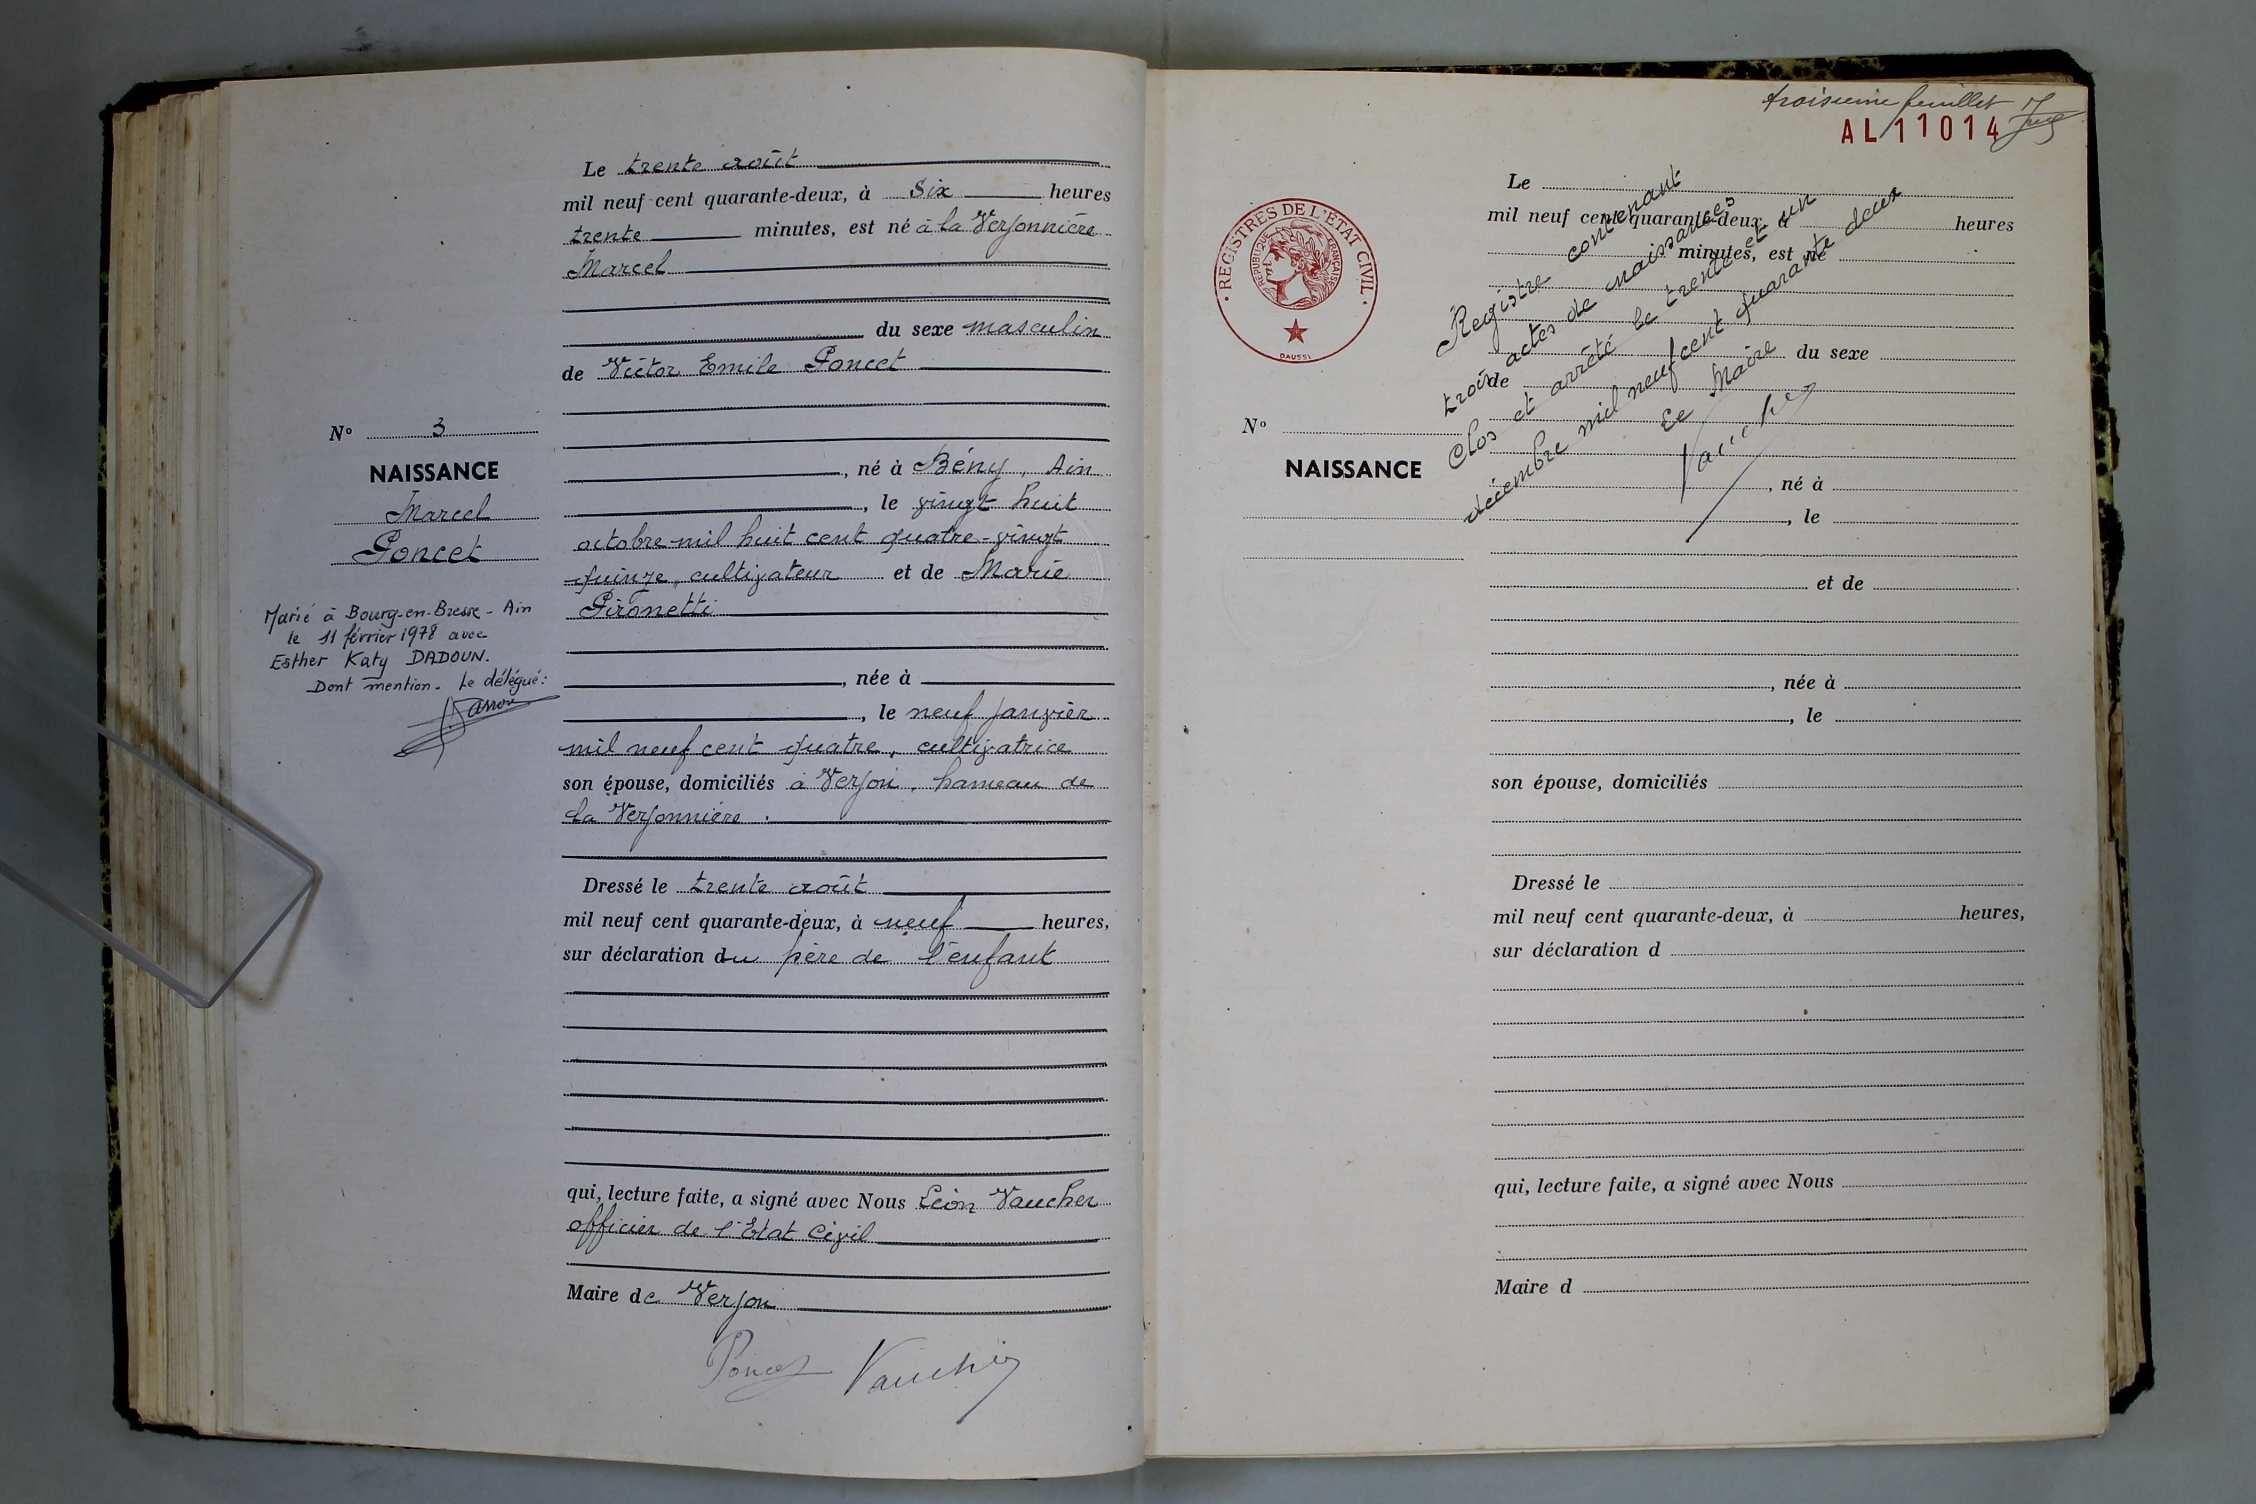 Le trente août
mil neuf cent quarante-deux, à Six heures
trente minutes, est né à la Verjonnière
Marcel
du sexe masculin
de Victor Emile Poncet
, né à Bény, Ain
, le vingt huit
octobre mil huit cent quatre-vingt
quinze, cultivateur et de Marie
Pironetti
, née à
, le neuf janvier
mil neuf cent quatre, cultivatrice
son épouse, domiciliés à Verjon, hameau de
la Verjonnière.
Dressé le trente août
mil neuf cent quarante-deux, à neuf heures,
sur déclaration du père de l'enfant
qui, lecture faite, a signé avec Nous Léon Vaucher
officier de l'Etat Civil
Maire de Verjon
Poncet Vaucher
N° 3
NAISSANCE
Marcel
Poncet
Marié à Bourg-en-Bresse - Ain
le 11 février 1978 avec
Esther Katy DADOUN.
Dont mention. Le délégué:
troisième feuillet
AL11014
REGISTRES DE L'ÉTAT CIVIL
RÉPUBLIQUE FRANÇAISE
DAUSSI
Registre contenant
trois actes de naissances
Clos et arrêté le trente et un
décembre mil neuf cent quarante deux
Le Maire
Vaucher
N°
NAISSANCE
Le
mil neuf cent quarante-deux, à heures
minutes, est né
du sexe
de
, né à
, le
et de
, née à
, le
son épouse, domiciliés
Dressé le
mil neuf cent quarante-deux, à heures,
sur déclaration d
qui, lecture faite, a signé avec Nous
Maire d